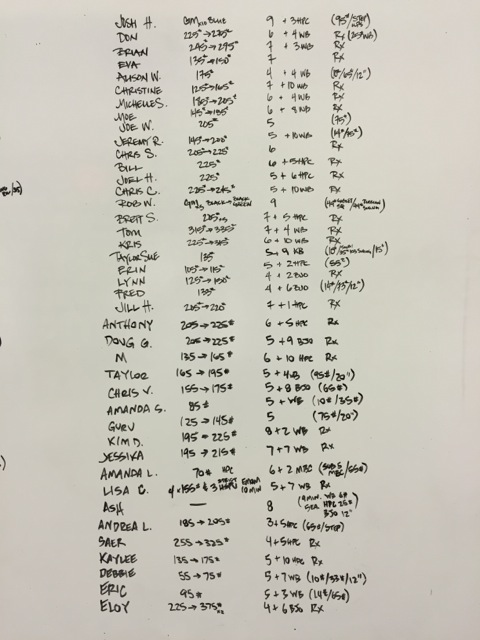 JOSH H. BLUE 9 + 3 HPC (95#/STEP)
DON 225# → 275# 6 + 4 WB Rx (25# WB)
BRIAN 245# → 295# 7 + 3 WB Rx
EVA 135# → 150# 7 Rx
ALISON W. 175# 4 + 4 WB /65#/12")
CHRISTINE 125 → 165# 7 + 10 WB Rx
MICHELLE S. 185# → 205# 6 + 4 WB Rx
MOE 145# → 185# 6 + 8 WB Rx
JOE W. 205# 5 (75#)
JEREMY R. 5 + 10 WB (14#/75#)
CHRIS S. 205 → 225# 6 Rx
BILL 225# 6 + 5 HPC Rx
JOEL H. 225# 5 + 6 HPC Rx
CHRIS C. 225 → 245# 5 + 10 WB Rx
ROB W. BLACK → BLACK GREEN 9
BRETT S. 7 + 5 HPC Rx
TOM 315# → 335# 7 + 4 WB Rx
KRIS 6 + 10 WB Rx
TAYLOR SUE 135 5 + 9 KB
ERIN 105# → 115# 5 + 2 HPC (55#)
LYNN 125 → 150# 4 + 2 BJO Rx
FRED 135# 4 + 6 BJO (14#/75#/12")
JILL H. 205 → 220# 7 + 1 HPC Rx
ANTHONY 205 → 225# 6 + 5 HPC Rx
DOUG G. 205 → 225# 5 + 9 BJO Rx
M 135 → 165# 6 + 10 HPC Rx
TAYLOR 165 → 195# 5 + 4 WB (95#/20")
CHRIS V. 155 → 175# 5 + 8 BJO (65#)
AMANDA S. 85# 5 + WB (10#/35#)
GURU 125 → 145# 5 (75#/20")
KIM D. 195 → 225# 8 + 2 WB Rx
JESSIKA 195 → 215# 7 + 7 WB Rx
AMANDA L. 70# HPC 6 + 2 MBC (SUB S MBC/65#)
LISA C. 4 x 155# & 3 STRICT HSPU EMOM 10 MIN 5 + 7 WB Rx
ASH — 8 (9 MIN. WB 6# HPC 25# BJO 12"
ANDREA L. 185 → 205# 3 + 5 HPC (65#/STEP)
SAER 255 → 325# 4 + 5 HPC Rx
KAYLEE 135 → 175# 5 + 10 HPC Rx
DEBBIE 55 → 75# 5 + 7 WB (10#/33#/12")
ERIC 95# 5 + 3 WB (14#/65#)
ELOY 225 → 375# x2 4 + 6 BJO Rx